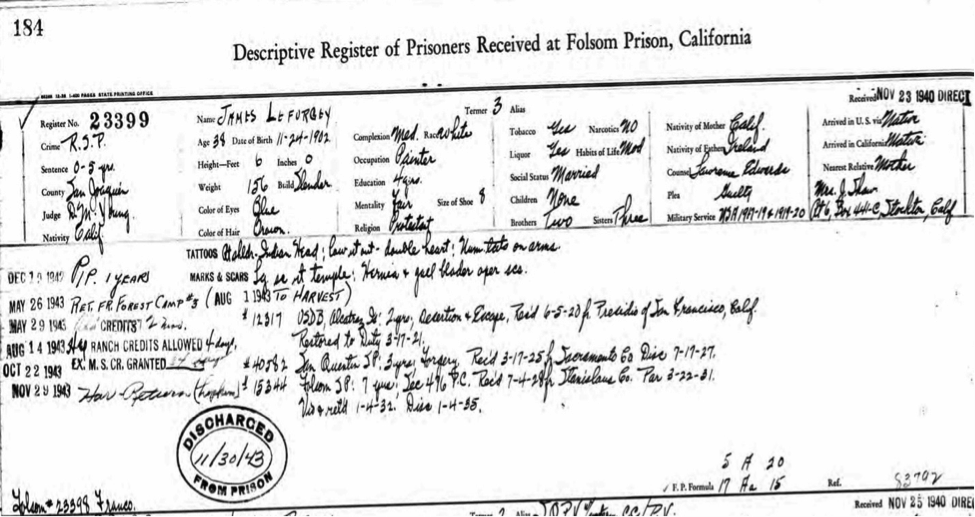 184
Descriptive Register of Prisoners Received at Folsom Prison, California
STATE PRINTING OFFICE
Register No. 23399
Crime R.S.P.
Sentence 0-5 yrs.
County San Joaquin
Judge D.M. Young
Nativity Calif
Name JAMES LEFURGEY
Age 38 Date of Birth 11-24-1902
Height—Feet 6 Inches 0
Weight 156 Build Slender
Color of Eyes Blue
Color of Hair Brown.
Termer 3 Alias
Complexion Med. Race White
Occupation Painter
Education 4 yrs.
Mentality Fair Size of Shoe 8
Religion Protestant
Tobacco Yes Narcotics NO
Liquor Yes Habits of Life Mod
Social Status Married
Children None
Brothers Two Sisters Three
Nativity of Mother Calif.
Nativity of Father Ireland
Counsel Lawrence Edwards
Plea Guilty
Military Service USA 1917-19 & 1919-20
Received NOV 23 1940 DIRECT
Arrived in U. S. via Native
Arrived in California Native
Nearest Relative Mother
Mrs. J. Shaw
Rt 6, Box 441-C, Stockton, Calf
TATTOOS Indian Head; double heart; Num tats on arms.
MARKS & SCARS Lg sc rt temple; Hernia & gall bladder oper scs.
DEC 19 1942 P/P. 1 YEARS
MAY 26 1943 RET. FR. FOREST CAMP #3 (AUG 1 1943 TO HARVEST)
MAY 29 1943 CREDITS 2 mos.
AUG 14 1943 RANCH CREDITS ALLOWED 4 days,
OCT 22 1943 EX. M. S. CR. GRANTED
NOV 29 1943 Har Return
# 12317 USDB, Alcatraz Is: 2 yrs, Desertion & Escape, Rec'd 6-5-20 fr Presidio of San Francisco, Calif.
Restored to Duty 3-17-21.
# 40582 San Quentin SP: 3 yrs; Forgery, Rec'd 3-17-25 fr Sacramento Co Disc 7-17-27.
# 15344 Folsom SP: 7 yrs; Sec 476 P.C. Rec'd 7-4-28 fr Stanislaus Co. Par 3-22-31.
Vio & ret'd 1-4-32. Disc 1-4-35.
DISCHARGED
11/30/43
FROM PRISON
5 A 20
F. P. Formula 17 Aa 15
Ref. 83792
Folsom # 23398 Franco.
Received NOV 25 1940 DIREC